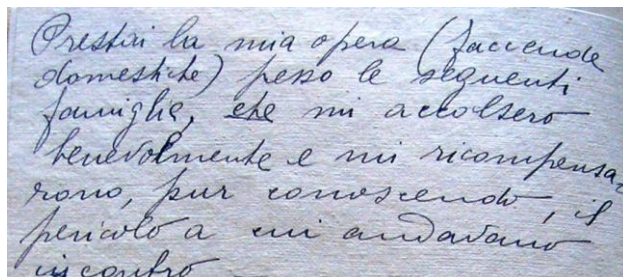 Prestai la mia opera (faccende
domestiche) presso le seguenti
famiglie, che mi accolsero
benevolmente e mi ricompensa-
rono, pur conoscendo, il
pericolo a cui andavano
incontro